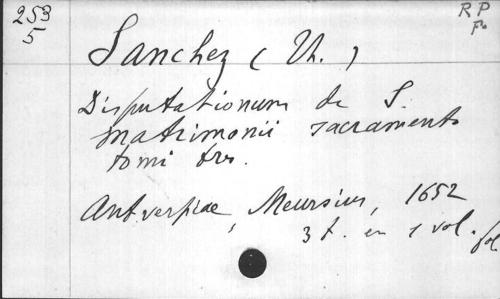 253
5
RP
Fo
Sanchez (Th.)
Disputationum de S.
matrimonii sacramento
tomi tres.
Antverpiae, Meursius, 1652
3 t. en 1 vol. fol.